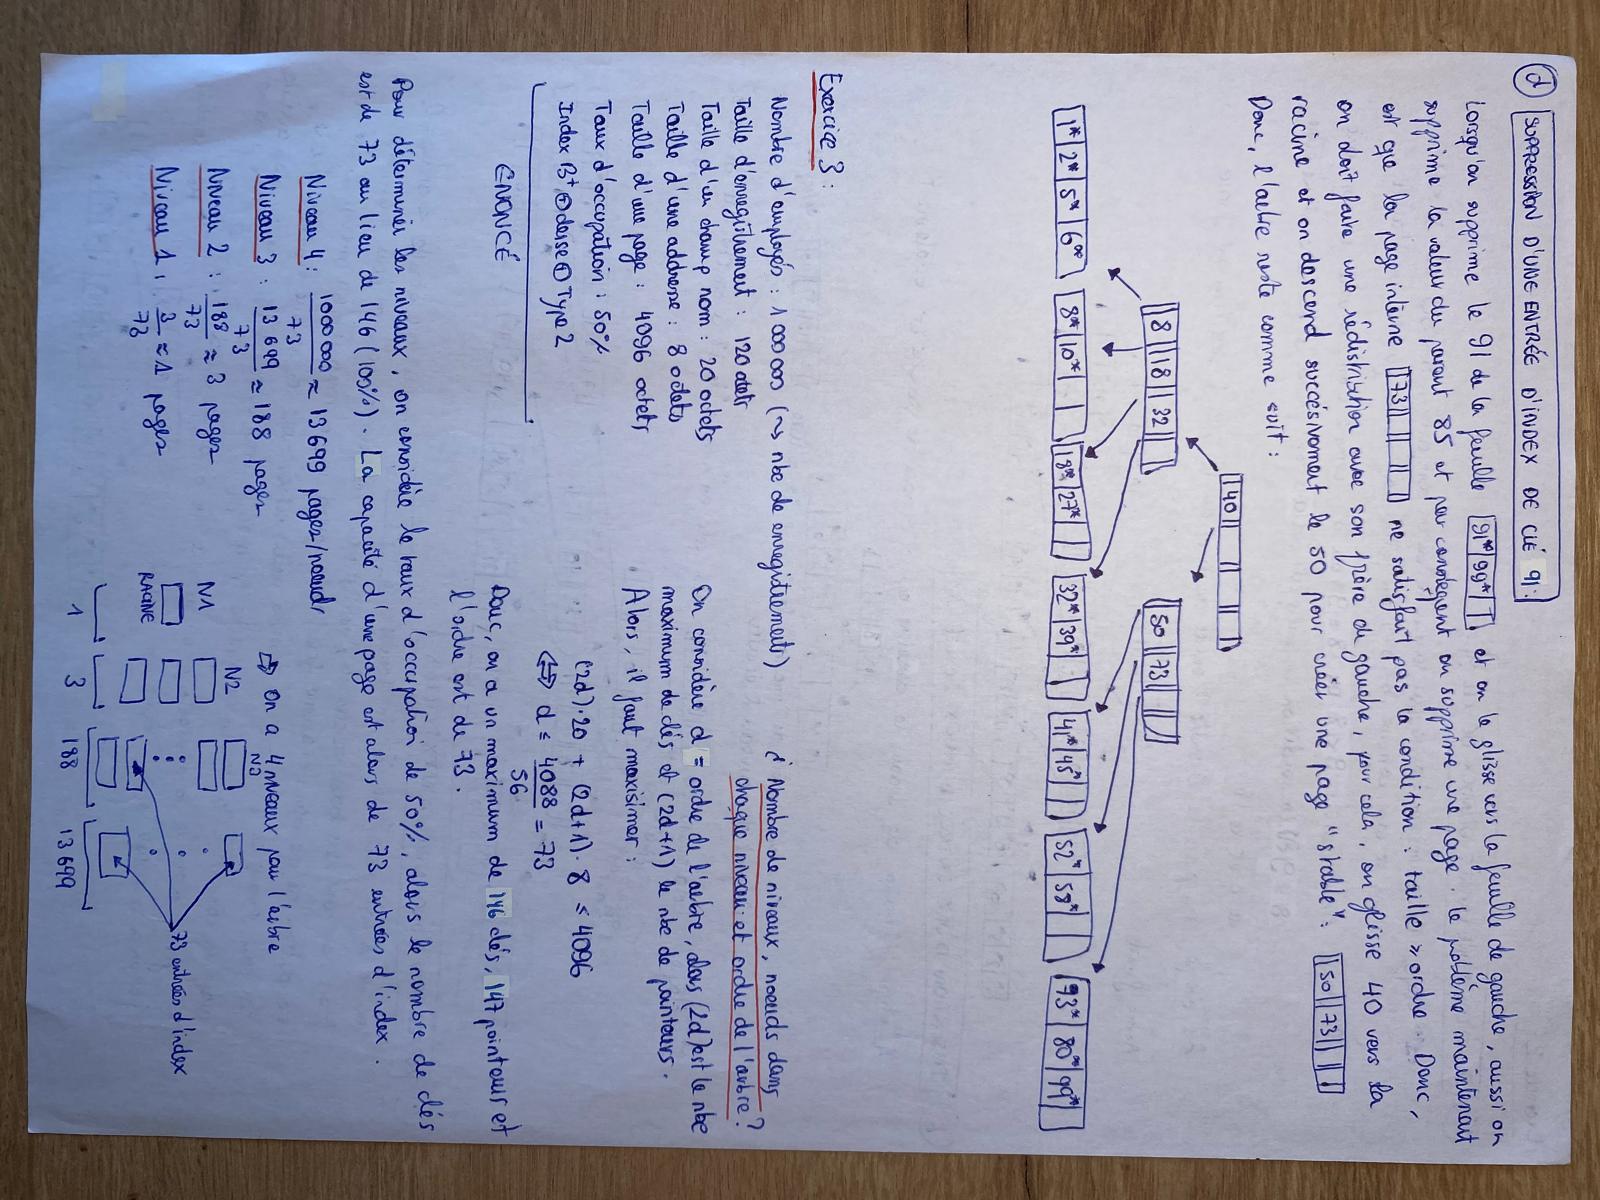 d SUPPRESSION D'UNE ENTRÉE D'INDEX DE CLÉ 91:
Lorsqu'on supprime le 91 de la feuille 91* 99* et on le glisse vers la feuille de gauche, aussi on
supprime la valeur du parent 85 et par conséquent on supprime une page. Le problème maintenant
est que la page interne 73 ne satisfait pas la condition: taille ≥ ordre. Donc,
on doit faire une rédistribution avec son frère de gauche, pour cela, on glisse 40 vers la
racine et on descend succésivement le 50 pour créer une page "stable": 50 73
Donc, l'arbre reste comme suit:
40
8 18 32
50 73
1* 2* 5* 6*
8* 10*
18* 27*
32* 39*
41* 45*
52* 58*
73* 80* 99*
Exercice 3:
Nombre d'employés: 1 000 000 (~> nbe de enregistrements)
Taille d'enregistrement: 120 octets
Taille d'un champ nom: 20 octets
Taille d'une addresse: 8 octets
Taille d'une page: 4096 octets
Taux d'occupation: 50%
Index B+ ⊕ dense ⊕ Type 2
ENONCÉ
¿ Nombre de niveaux, noeuds dans
chaque niveau et ordre de l'arbre?
On considère d = ordre de l'arbre, alors (2d) est le nbe
maximum de clés et (2d+1) le nbe de pointeurs.
Alors, il faut maxisimer:
(2d)·20 + (2d+1)·8 ≤ 4096
⟺ d ≤ 4088/56 = 73
Donc, on a un maximum de 146 clés, 147 pointeurs et
l'ordre est de 73.
Pour déterminer les niveaux, on considère le taux d'occupation de 50%, alors le nombre de clés
est de 73 au lieu de 146 (100%). La capacité d'une page est alors de 73 entrées d'index.
Niveau 4: 1000 000/73 ≈ 13 699 pages/noeuds
Niveau 3: 13 699/73 ≈ 188 pages
Niveau 2: 188/73 ≈ 3 pages
Niveau 1: 3/73 ≈ 1 pages
⇒ On a 4 niveaux pour l'arbre
N1
RACINE
N2
N3
73 entrées d'index
1
3
188
13 699